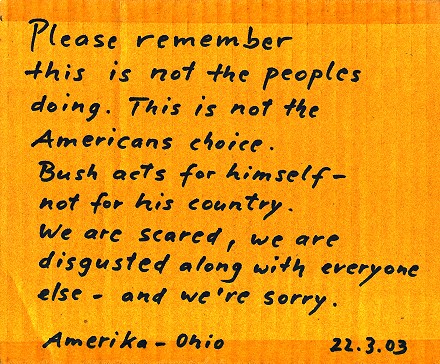 Please remember
this is not the peoples
doing. This is not the
Americans choice.
Bush acts for himself-
not for his country.
We are scared, we are
disgusted along with everyone
else - and we're sorry.
Amerika - Ohio 22.3.03